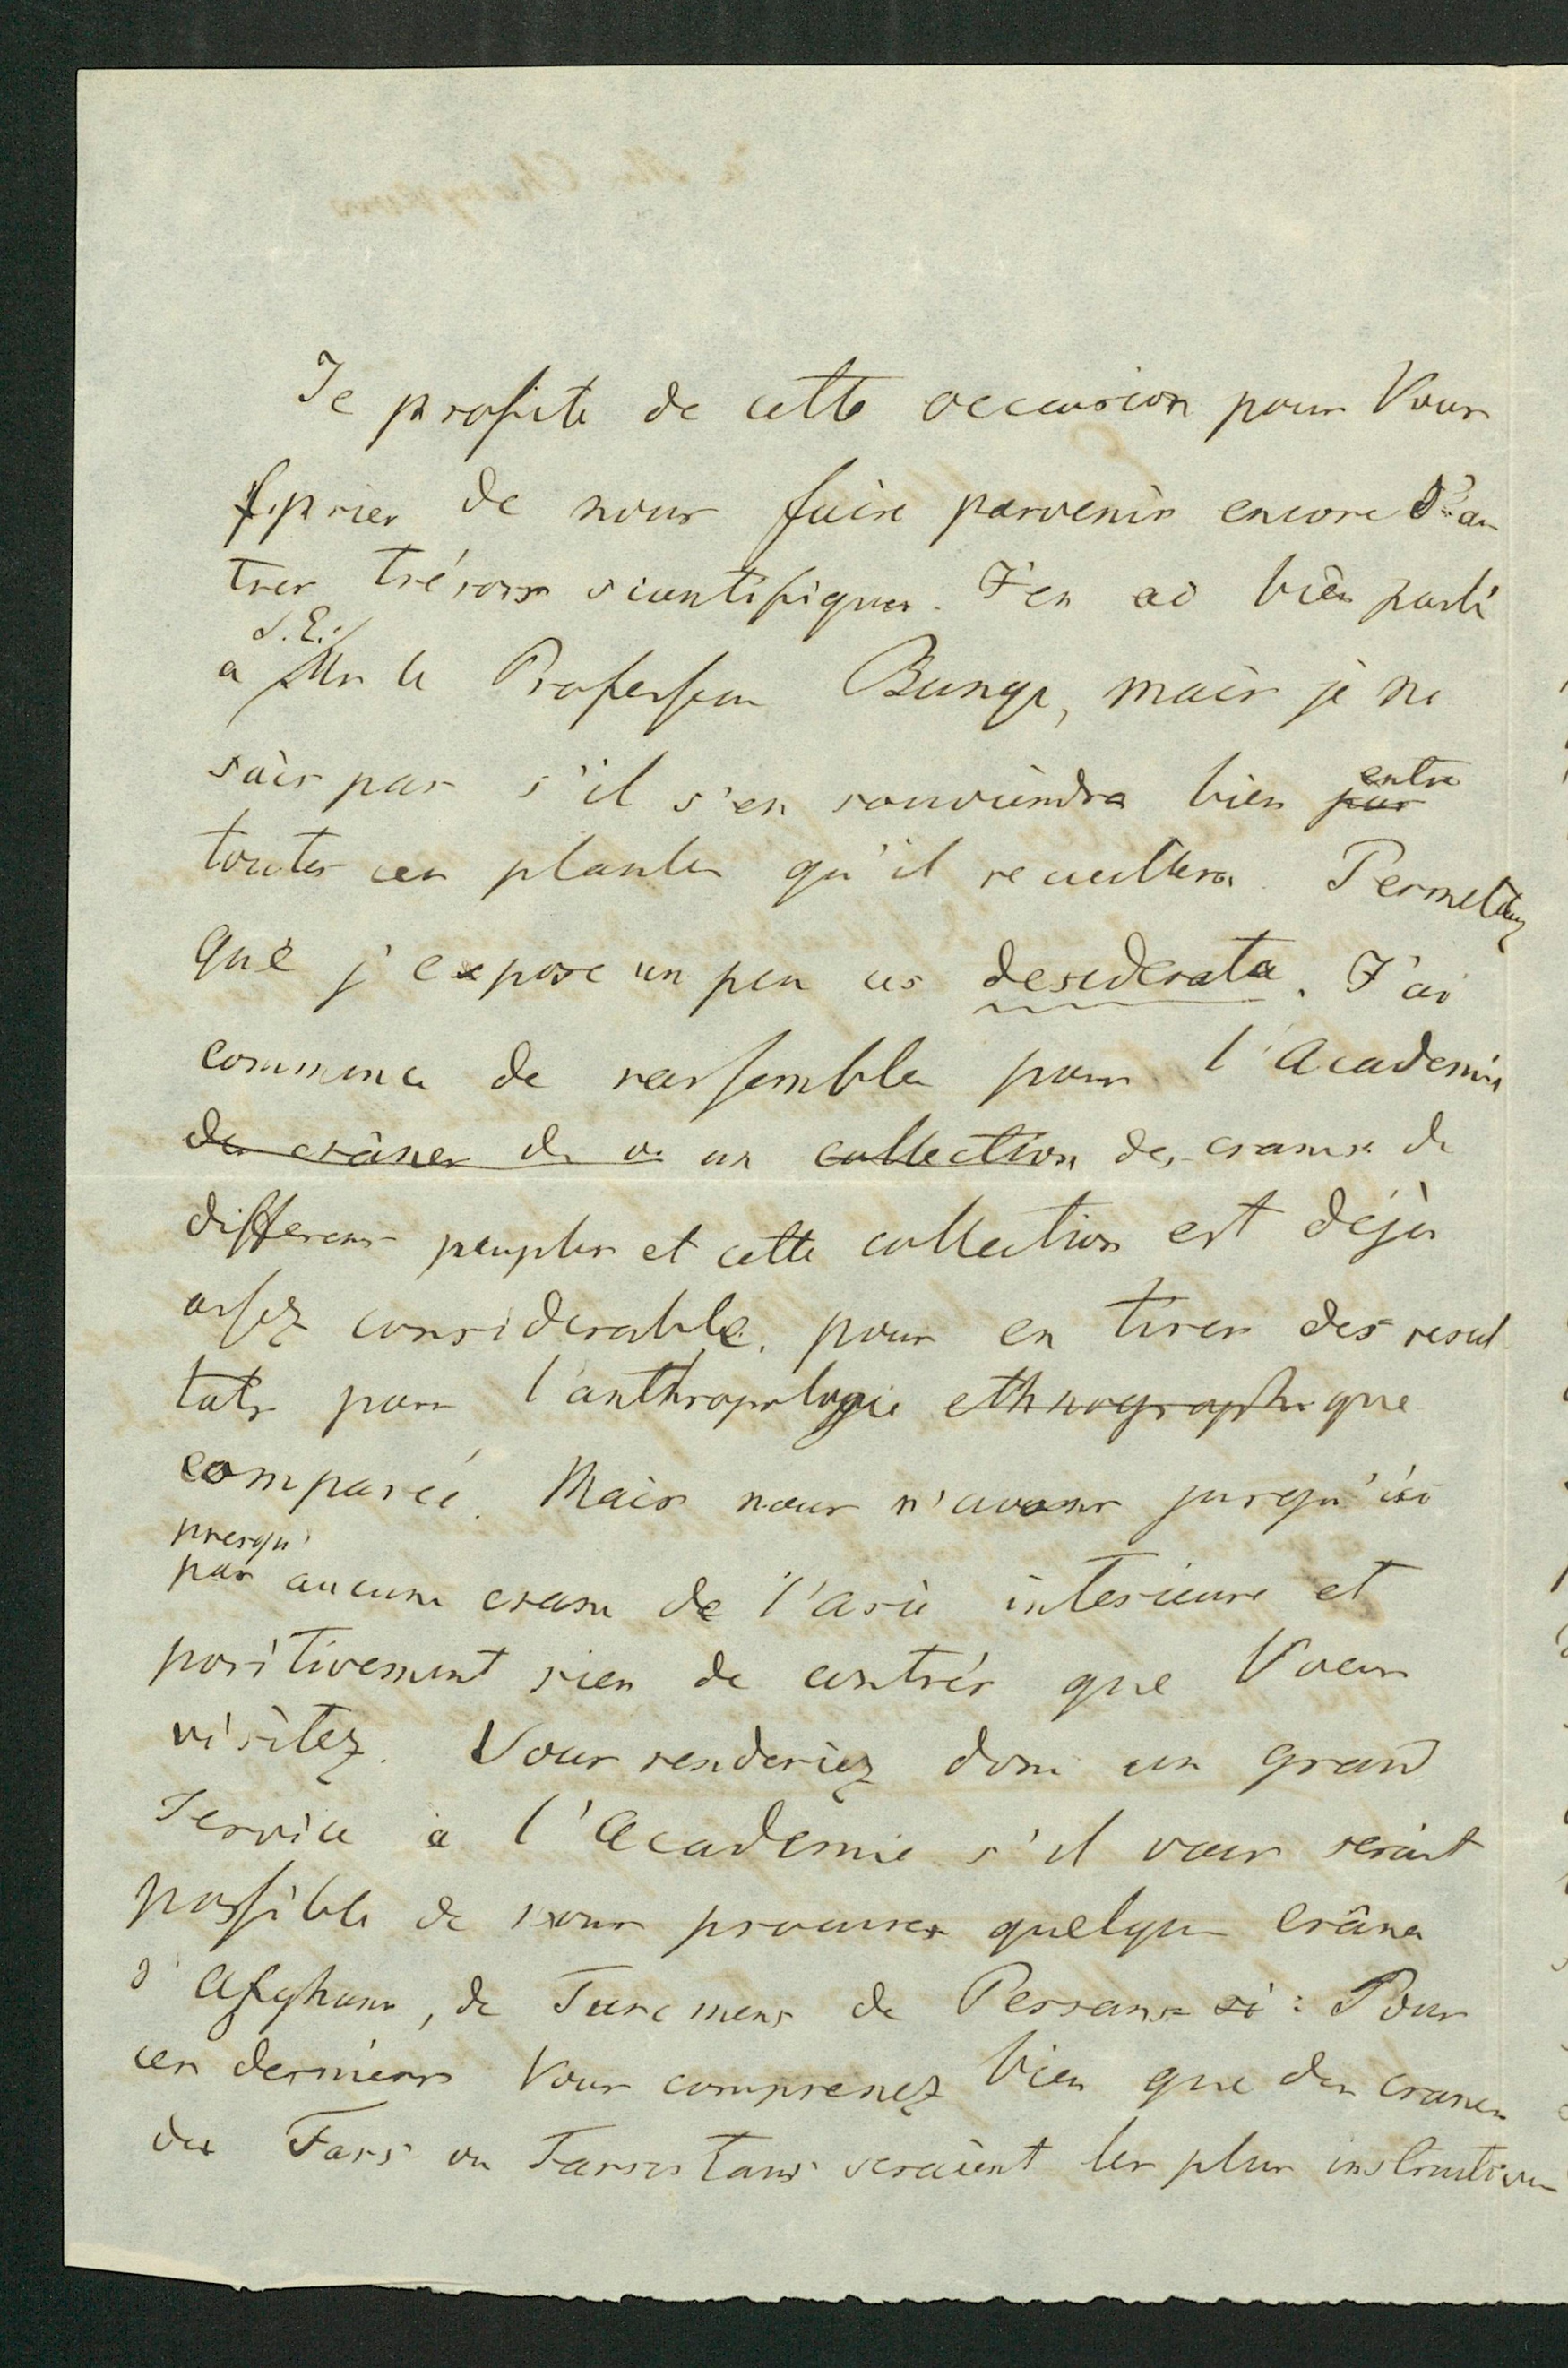 Je profite de cette occasion pour Vous
prier de nous faire parvenir encore d'au
tres trésors scientifiques. J'en ai bien parlé
S.E.
a Mr le Professeur Bunge, mais je ne
sais pas s'il s'en souviendra bien pur entre
toutes ces plantes qu'il recueillera. Permettez
que j'expose un peu ces desiderata. J'ai
commencé de rassembler pour l'Academie
des crânes de un collection des cranes de
differens peuples et cette collection est déjà
assez considerable, pour en tirer des resul
tats pour l'anthropologie ethnographique
comparée. Mais nous n'avons jusqu'ici
presqu'
pas aucune crane de l'asie interieure et
positivement rien de contrés que Vous
visitez. Vous renderiez donc un grand
Service a l'Academie s'il vous serait
possible de nous procurer quelque crânes
d'Afghans, de Turcmens de Persans si: Pour
ces derniers Vous comprenez bien que des cranes
des Fars ou Farsistans seraient les plus instructives